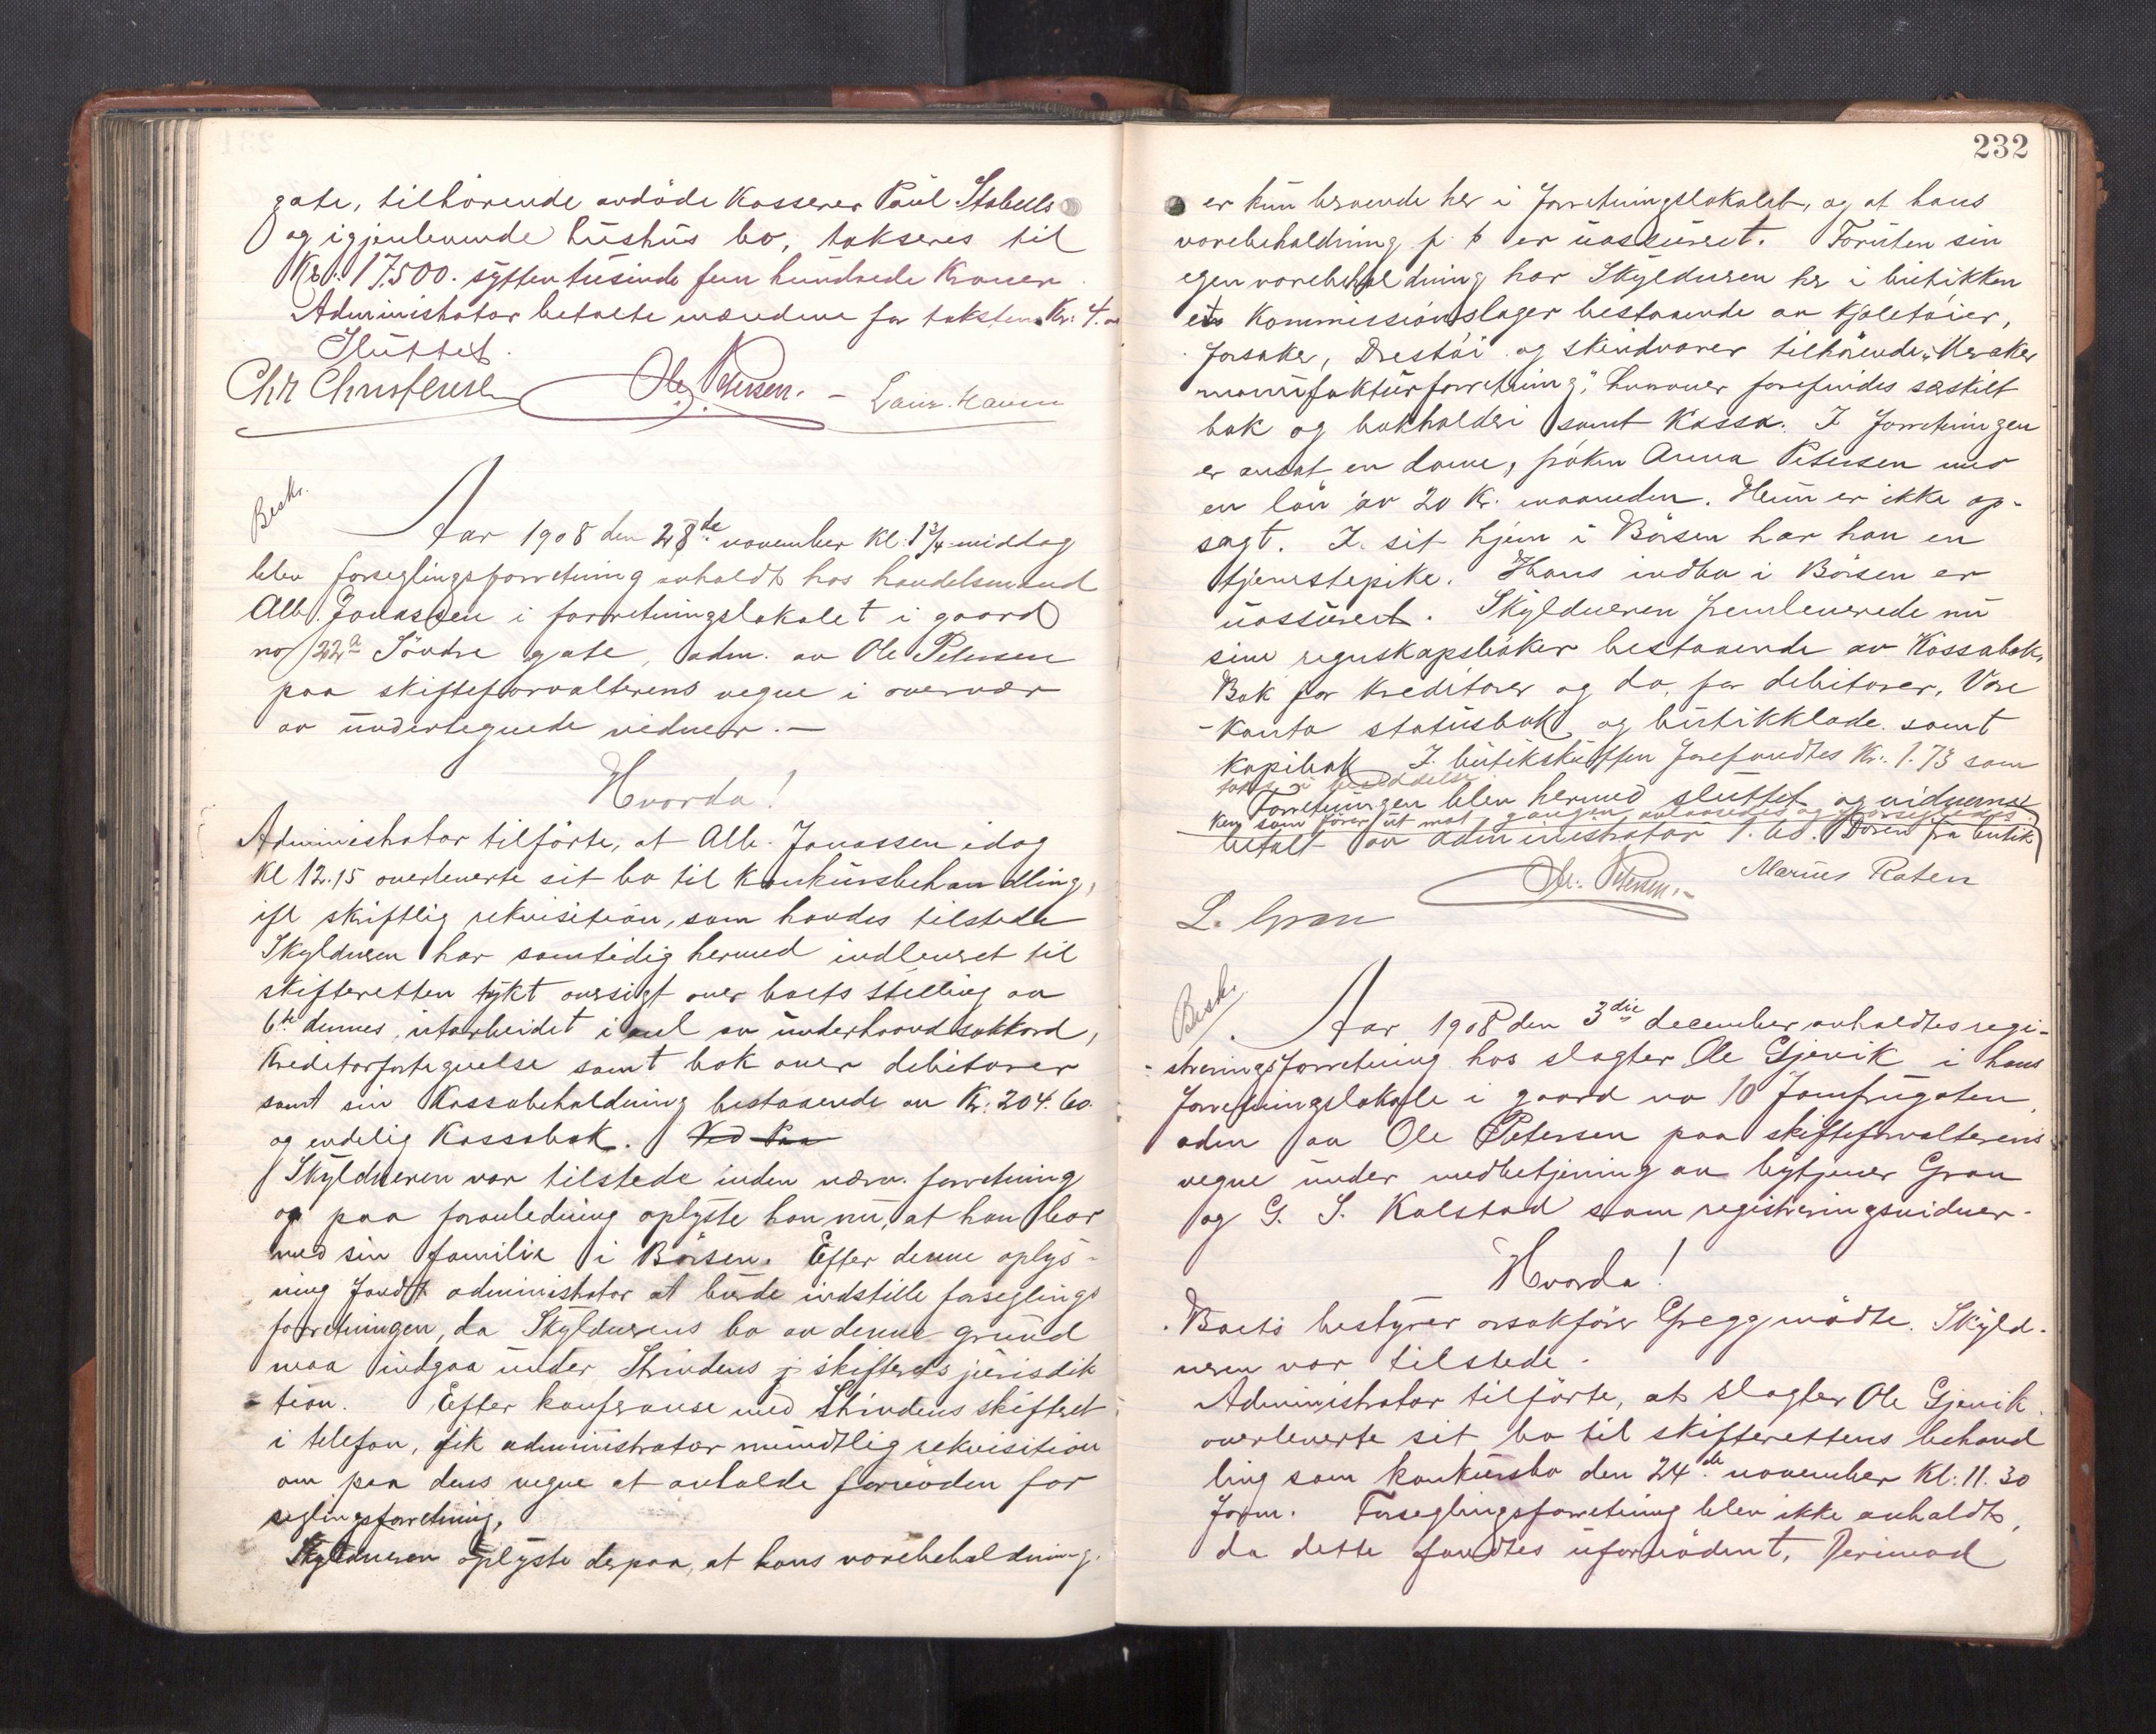 gate, tilhørende avdøde Kasserer Paul Stabells
og igjenlevende hushus bo, takseres til
Kr. 17.500. sytten tusinde fem hundrede Kroner.
Administrator betalte mændene for taksten Kr. 4.
Sluttet.
Chr Christensen Ole Petersen. – Laur. Haum
Beskr.
Aar 1908 den 28de november kl. 1¾ middag
blev forseglingsforretning avholdt hos handelsmand
Alb. Jonassen i forretningslokalet i gaard
no 22a Söndre gate, adm. av Ole Petersen
paa skifteforvalterens vegne i overvær
av undertegnede vidner. –
Hvorda!
Administrator tilførte, at Alb. Jonassen idag
Kl 12.15 overleverte sit bo til Konkursbehandling,
ifl skriftlig rekvisition, som havdes tilstede
Skyldneren har samtidig hermed indleveret til
skifteretten trykt oversigt over boets stilling av
6te dennes, utarbeidet i anl av underhaandsakkord,
Kreditorfortegnelse samt bok over debitorer
samt sin Kassabeholdning bestaaende av Kr. 204.60.
og endelig Kassabok. Ved Paa
Skyldneren var tilstede under nærv. forretning
og paa foranledning oplyste han nu, at han bor
med sin familie i Börsen. Efter denne oplys-
ning fandt administrator at burde indstille forseglings
forretningen, da Skyldnerens bo av denne grund
maa indgaa under Strindens j skifterets jurisdik
tion. Efter konferanse med Strindens skifteret
i telefon, fik administrator mundtlig rekvisition
om paa dens vegne at avholde fornöden for
seglingsforretning.
Skyldneren oplyste derpaa, at hans varebeholdning
232
er kun beroende her i forretningslokalet, og at hans
varebeholdning p. t er uassureret. Foruten sin
egen varebeholdning har Skyldneren her i butikken
et Kommissionslager bestaaende av Kjoletöier,
forsaker, Drestöi og skindvarer tilhörende "Meraker
manufakturforretning", hvorover forefindes særskilt
bok og bokholderi samt Kassa. I forretningen
er ansat en dame, fröken Anna Petersen med
en lön av 20 Kr. maaneden. Hun er ikke op-
sagt. I sit hjem i Börsen har han en
tjenestepike. Hans indbo i Börsen er
uassureret. Skyldneren fremleverede nu
sine regnskapsböker bestaaende av Kassabok,
Bok for Kreditorer og do. for debitorer, Vare
-konto statusbok og butikklade samt
kopibok I butikskuffen forefandtes Kr. 1.73 som
toges i besiddelse
Forretningen blev hermed sluttet og vidnerne
ken som förer ut mot gangen avlaasedes og forsegledes
betalt av administrator 1.60. Dören fra butik
Ole Petersen. – Marius Raten
L. Gran
Beskr.
Aar 1908 den 3die december avholdtes regi-
streringsforretning hos slagter Ole Gjevik i hans
forretningslokale i gaard no 10 Jomfrugaten,
adm av Ole Petersen paa skifteforvalterens
vegne under medbetjening av bytjener Gran
og G. S. Kalstad som registreringsvidner.
Hvorda!
Boets bestyrer orsakförer Gregg mödte. Skyld-
neren var tilstede.
Administrator tilförte, at slagter Ole Gjevik
overleverte sit bo til skifterettens behand
ling som konkursbo den 24de november Kl. 11.30
form. Forseglingsforretning blev ikke avholdt,
da dette fandtes ufornödent. Derimod